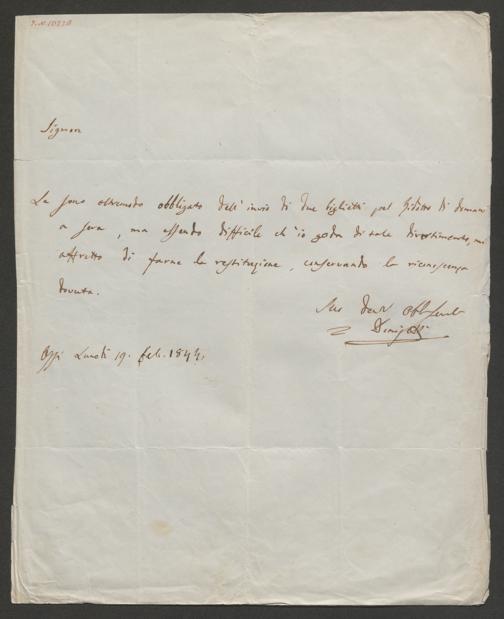 I.N. 10220
Signora
Le sono oltremodo obbligato dell'invio di due biglietti pel Ridotto di domani
a sera, ma essendo difficile ch'io goda di tale divertimento, mi
affretto di farne la restituzione, conservando la riconoscenza
dovuta.
Suo Dev.
Donizetti
Oggi Lunedi 19. feb. 1844.